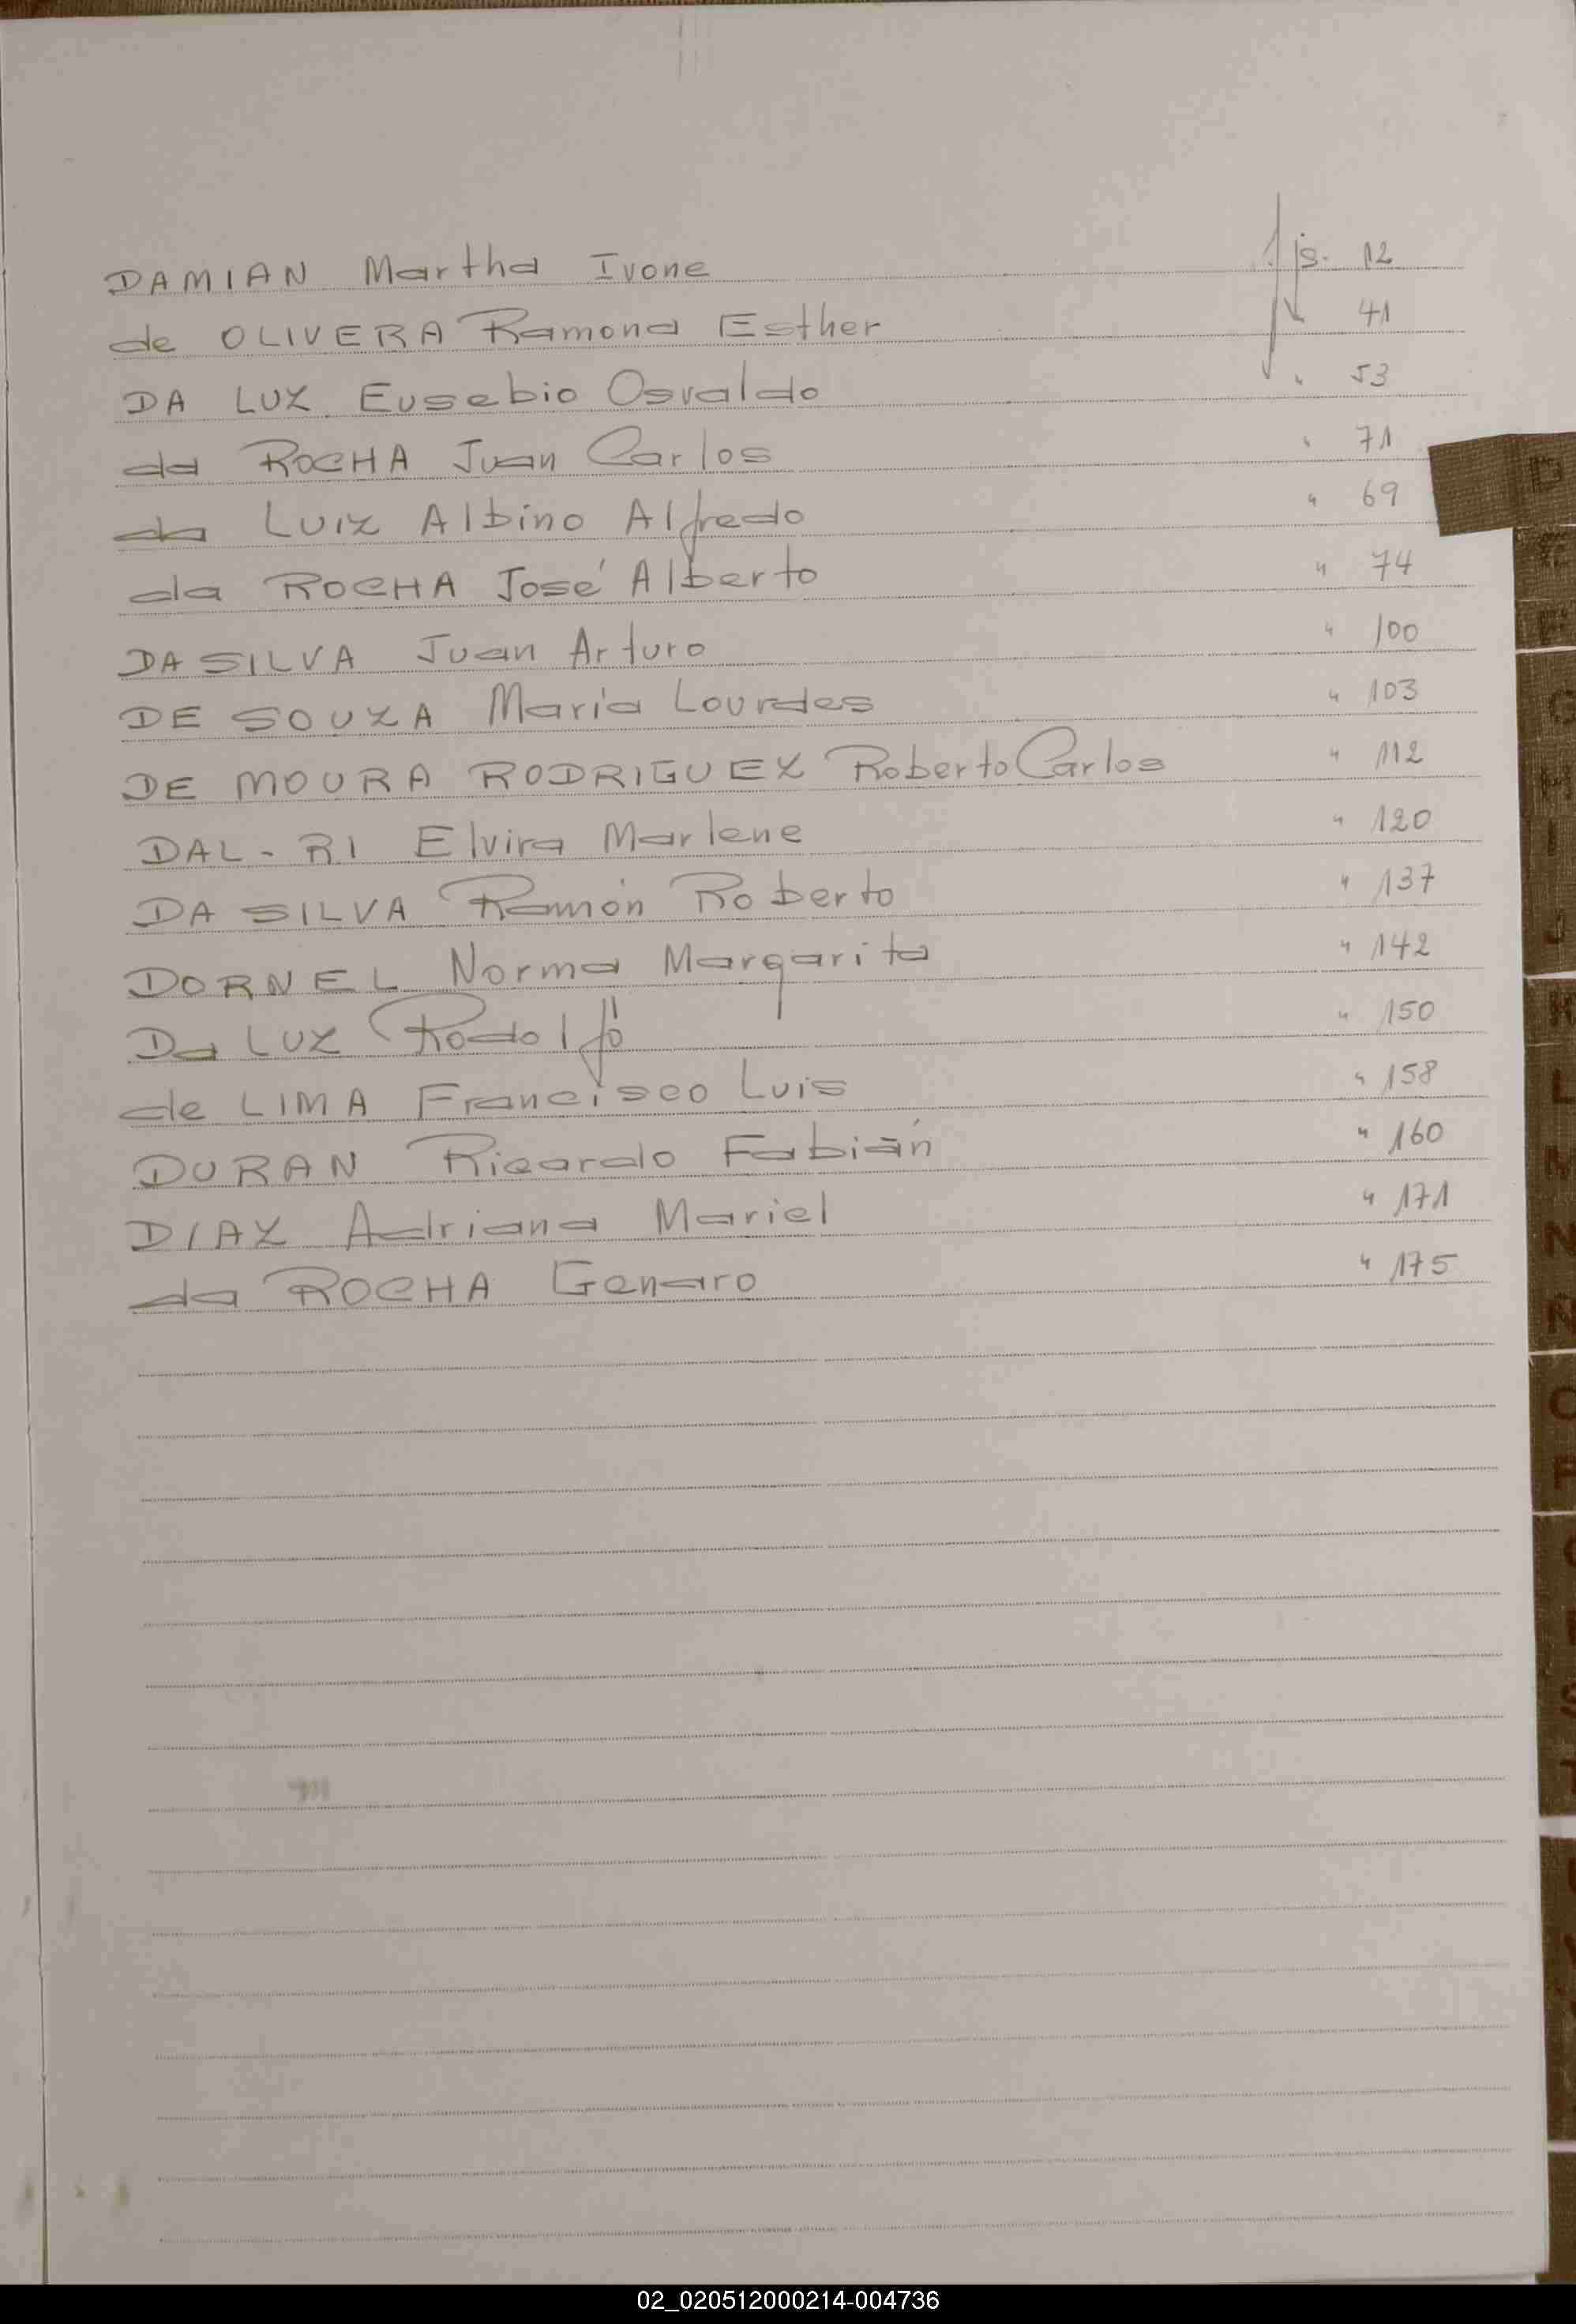 DAMIAN Martha Ivone fjs. 12
de OLIVERA Ramona Esther " 41
DA LUZ Eusebio Osvaldo " 53
da ROCHA Juan Carlos " 71
da LUIZ Albino Alfredo " 69
da ROCHA José Alberto " 74
DA SILVA Juan Arturo " 100
DE SOUZA María Lourdes " 103
DE MOURA RODRIGUEZ Roberto Carlos " 112
DAL-RI Elvira Marlene " 120
DA SILVA Ramón Roberto " 137
DORNEL Norma Margarita " 142
Da LUZ Rodolfo " 150
de LIMA Francisco Luis " 158
DURAN Ricardo Fabián " 160
DIAZ Adriana Mariel " 171
da ROCHA Genaro " 175
D
02_020512000214-004736